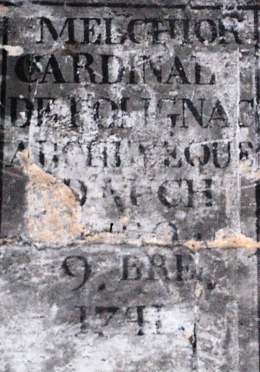 MELCHIOR
CARDINAL
DE POLIGNAC
ARCHEVEQUE
D'AUCH
9. BRE.
1741.